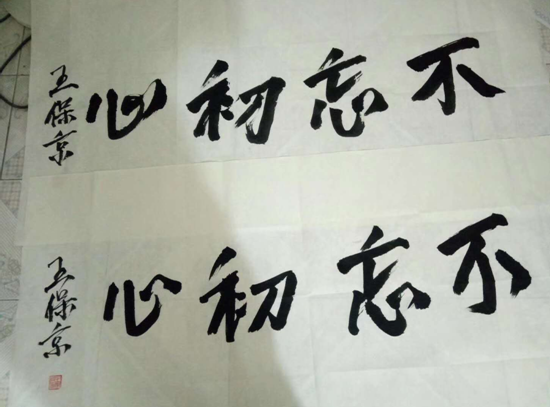 不忘初心
王保京
不忘初心
王保京